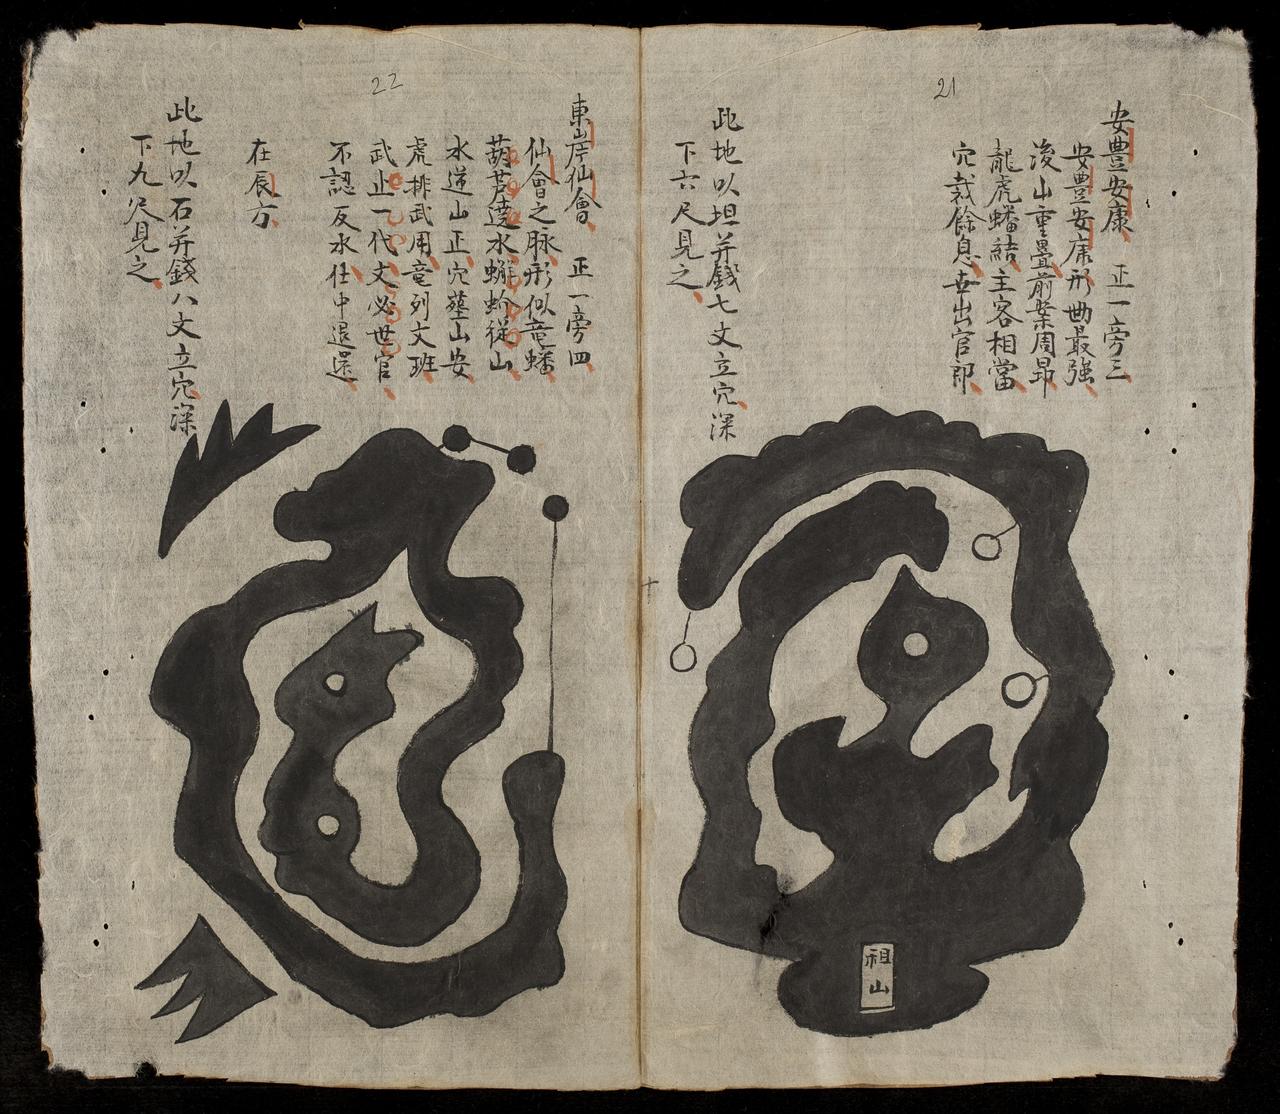 21
安豊安康 正一旁三
安豊安康形曲最強
後山重疊前案周昂
龍虎蟠結主客相當
穴裁餘息世出官郎
此地以坦并錢七文立穴深
下六尺見之
祖山
22
東岸仙會 正一旁四
仙會之脉形似竜蟠
葫芦遶水蜿蛉従山
水遶山正穴塟山安
虎排武用竜列文班
武止一代文必世官
不認反水仕中退還
在辰方
此地以石并錢八文立穴深
下九尺見之